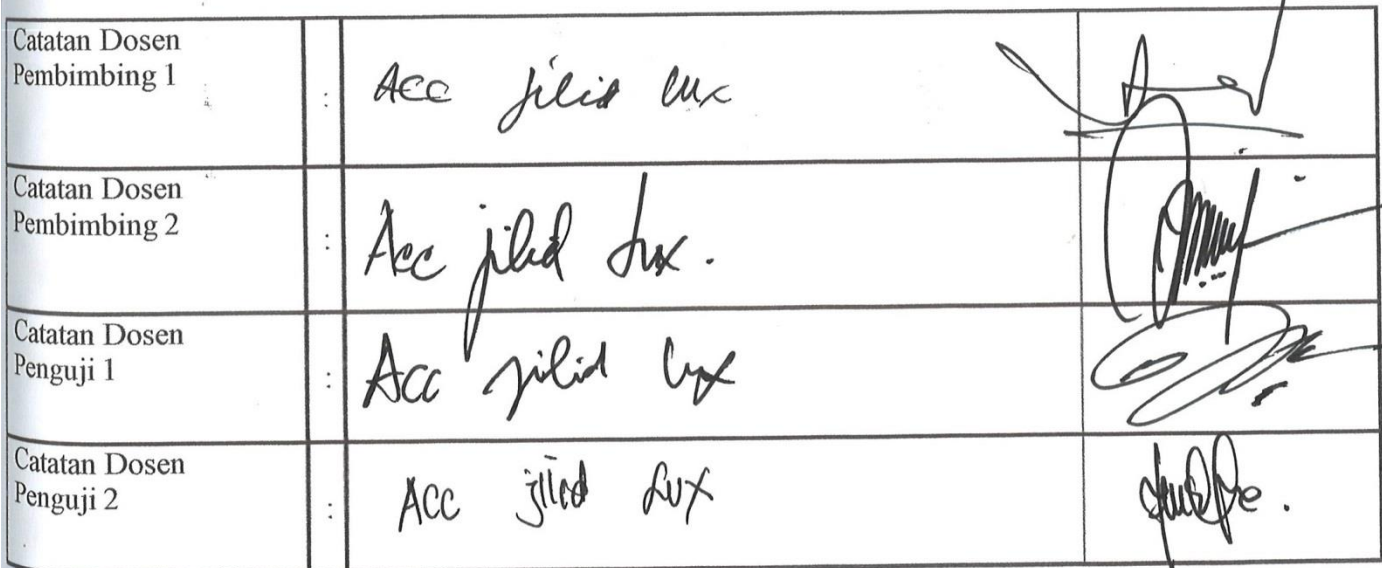 Catatan Dosen
Pembimbing 1 : Acc jilid lux
Catatan Dosen
Pembimbing 2 : Acc jilid lux.
Catatan Dosen
Penguji 1 : Acc jilid lux
Catatan Dosen
Penguji 2 : Acc jilid Lux